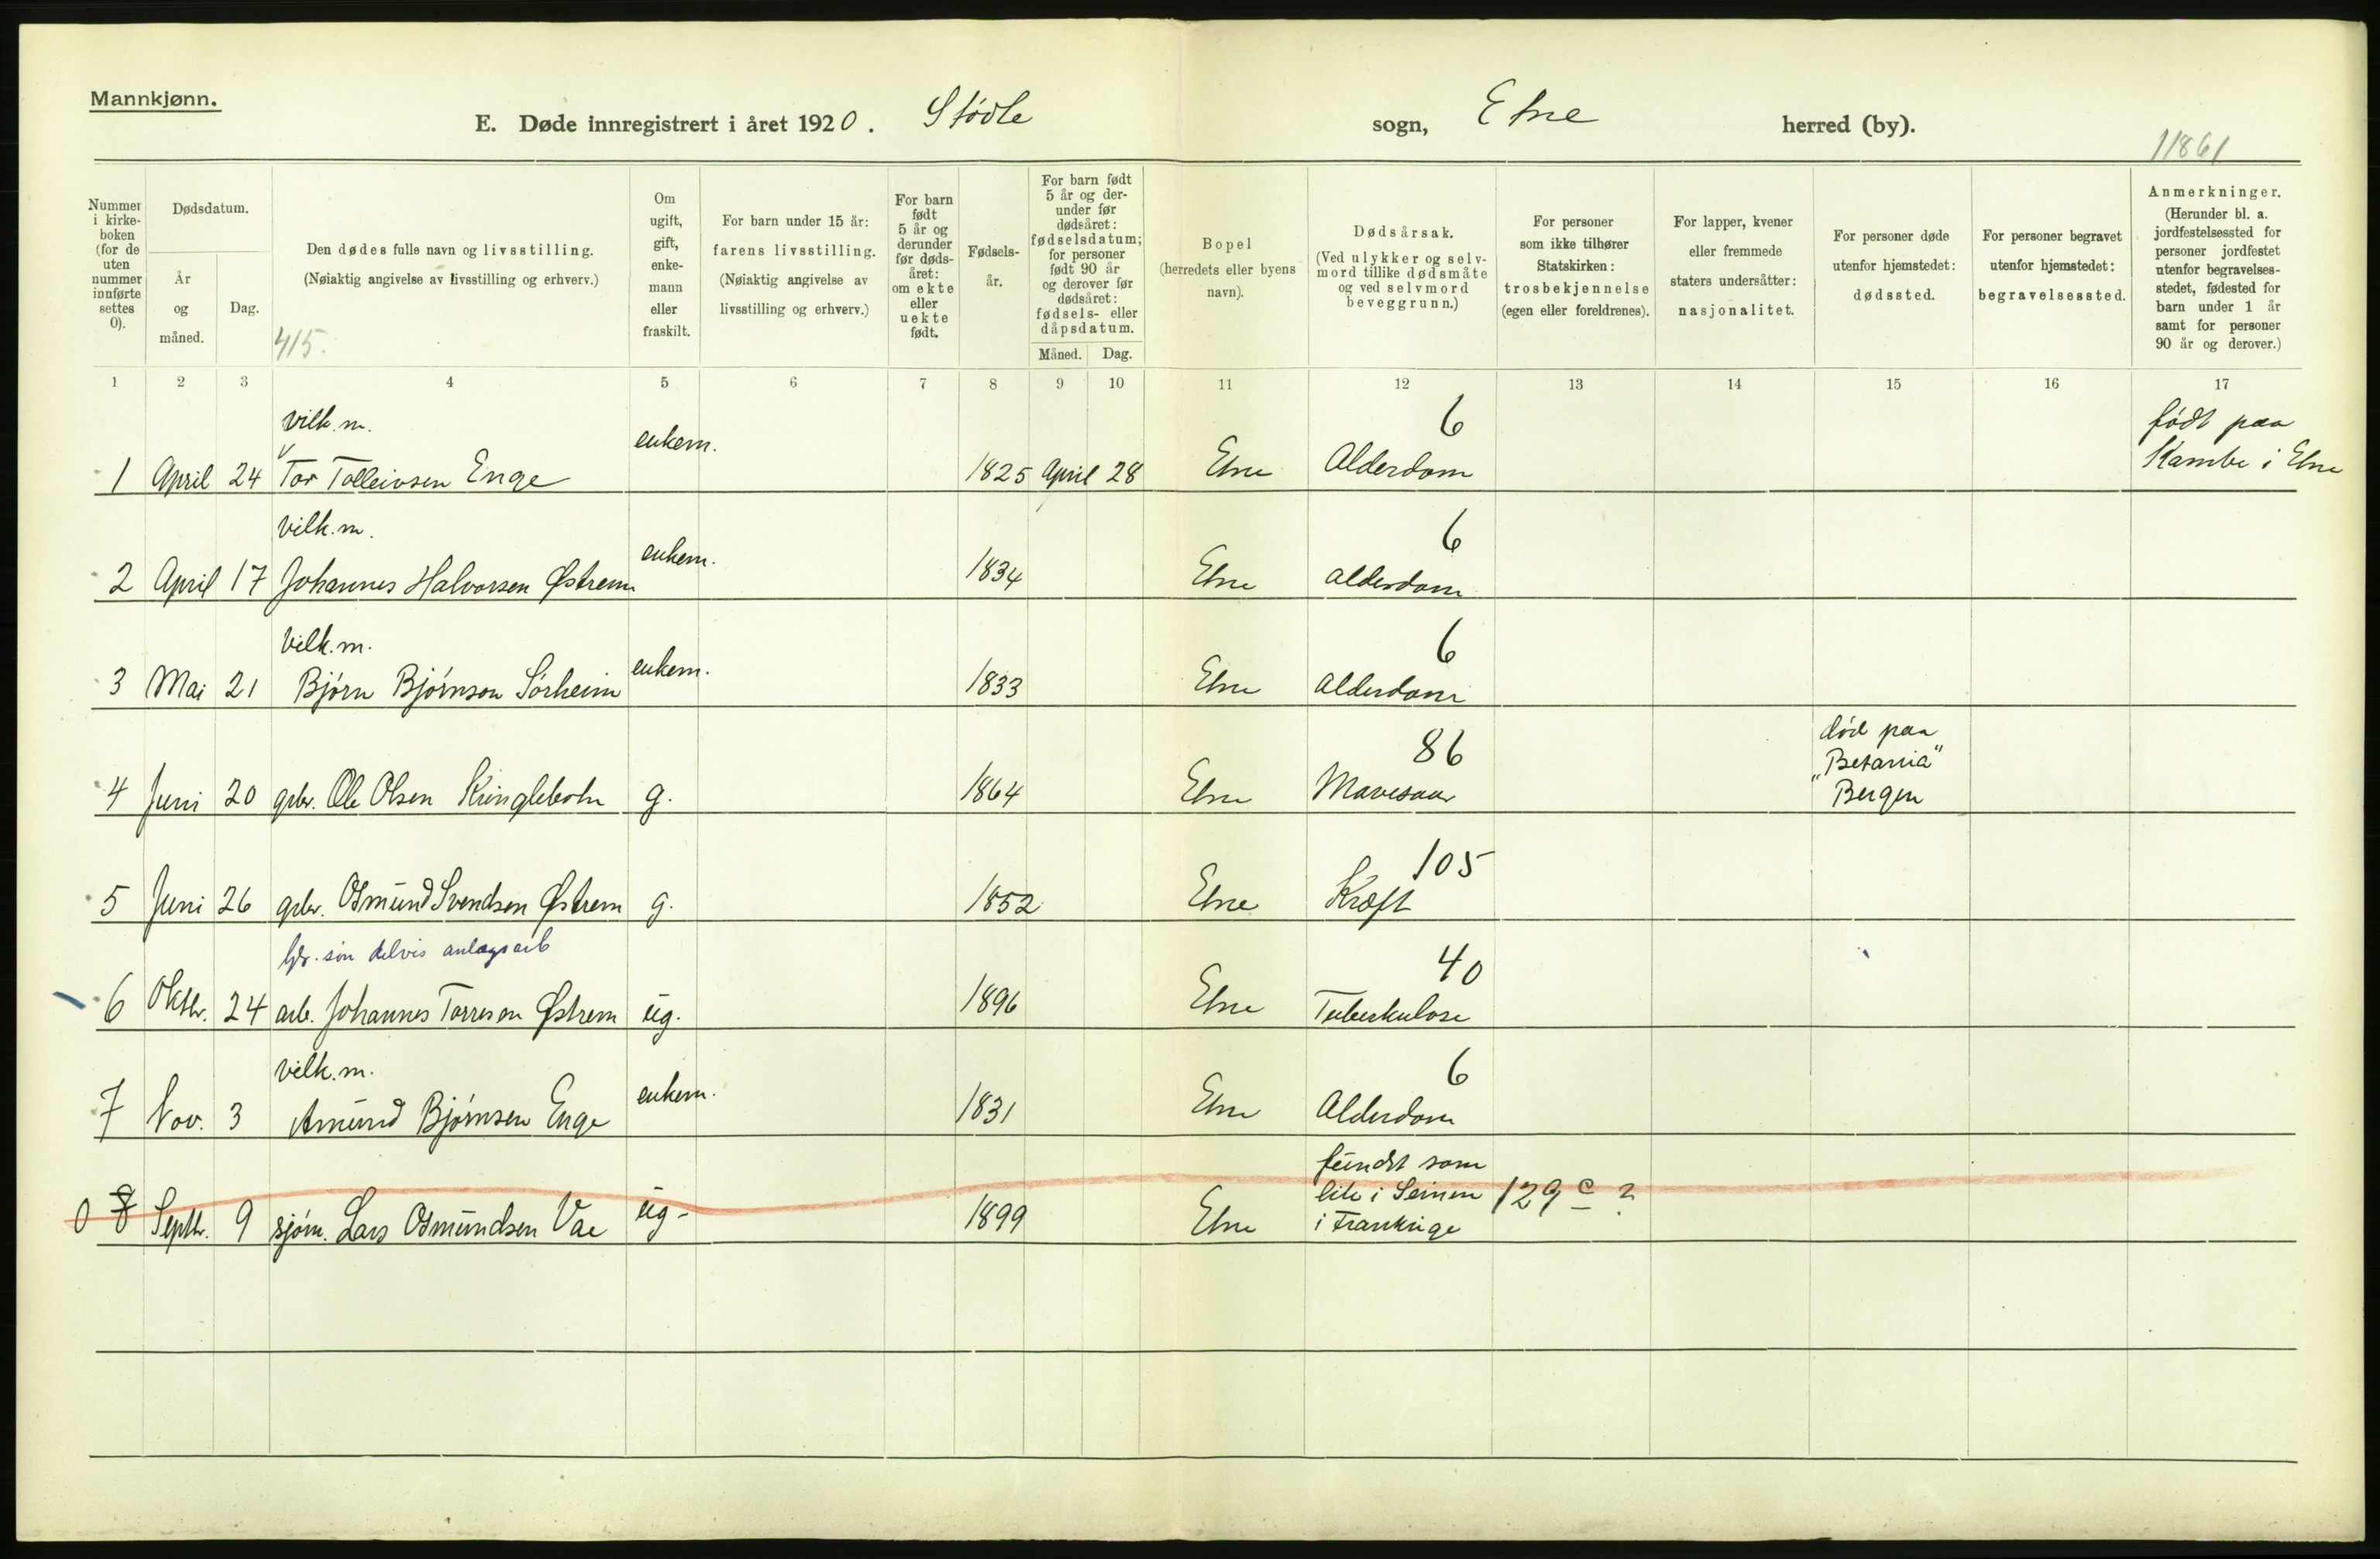 Mannkjønn.
E. Døde innregistrert i året 1920. Stødle sogn, Etne herred (by).
11861
Nummer i kirke-boken (for de uten nummer innførte settes 0).
Dødsdatum.
År og måned.
Dag.
Den dødes fulle navn og livsstilling.
(Nøiaktig angivelse av livsstilling og erhverv.)
415.
Om ugift, gift, enke-mann eller fraskilt.
For barn under 15 år: farens livsstilling.
(Nøiaktig angivelse av livsstilling og erhverv.)
For barn født 5 år og derunder før døds-året: om ekte eller uekte født.
Fødsels-år.
For barn født 5 år og der-under før dødsåret: fødselsdatum; for personer født 90 år og derover før dødsåret: fødsels- eller dåpsdatum.
Måned. Dag.
Bopel (herredets eller byens navn).
Dødsårsak.
(Ved ulykker og selv-mord tillike dødsmåte og ved selvmord beveggrunn.)
For personer som ikke tilhører Statskirken: trosbekjennelse (egen eller foreldrenes).
For lapper, kvener eller fremmede staters undersåtter: nasjonalitet.
For personer døde utenfor hjemstedet: dødssted.
For personer begravet utenfor hjemstedet: begravelsessted.
Anmerkninger.
(Herunder bl. a. jordfestelsessted for personer jordfestet utenfor begravelses-stedet, fødested for barn under 1 år samt for personer 90 år og derover.)
1 2 3 4 5 6 7 8 9 10 11 12 13 14 15 16 17
vilk.m. 6 født paa
1 April 24 Tor Tolleivsen Enge enkem. 1825 April 28 Etne Alderdom Kambe i Etne
vilk.m. 6
2 April 17 Johannes Halvorsen Østrem enkem. 1834 Etne alderdom
vilk.m. 6
3 Mai 21 Bjørn Bjørnson Sørheim enkem. 1833 Etne alderdom
86 død paa "Betania"
4 Juni 20 gbr. Ole Olsen Kringlebotn g. 1864 Etne Mavesaar Bergen
105
5 Juni 26 gbr. Osmund Svendsen Østrem g. 1852 Etne Kræft
gbr. søn delvis anlægsarb 40
6 Oktbr. 24 arb. Johannes Torresen Østrem ug. 1896 Etne Tuberkulose
vilk.m. 6
7 Nov. 3 Amund Bjørnsen Enge enkem. 1831 Etne Alderdom
fundet som
lik i Seinen 129 c ?
0 8 Septbr. 9 sjøm. Lars Osmundsen Vae ug- 1899 Etne i Frankrige